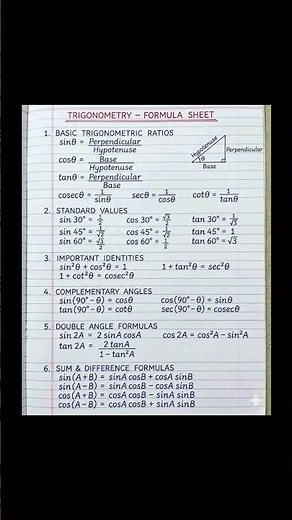 TRIGONOMETRY – FORMULA SHEET
1. BASIC TRIGONOMETRIC RATIOS
sinθ = Perpendicular / Hypotenuse
cosθ = Base / Hypotenuse
tanθ = Perpendicular / Base
Hypotenuse
Perpendicular
θ
Base
cosecθ = 1/sinθ secθ = 1/cosθ cotθ = 1/tanθ
2. STANDARD VALUES
sin 30° = 1/2 cos 30° = √3/2 tan 30° = 1/√3
sin 45° = 1/√2 cos 45° = 1/√2 tan 45° = 1
sin 60° = √3/2 cos 60° = 1/2 tan 60° = √3
3. IMPORTANT IDENTITIES
sin²θ + cos²θ = 1 1 + tan²θ = sec²θ
1 + cot²θ = cosec²θ
4. COMPLEMENTARY ANGLES
sin(90°–θ) = cosθ cos(90°–θ) = sinθ
tan(90°–θ) = cotθ sec(90°–θ) = cosecθ
5. DOUBLE ANGLE FORMULAS
sin 2A = 2 sinA cosA cos 2A = cos²A – sin²A
tan 2A = 2 tanA / 1 – tan²A
6. SUM & DIFFERENCE FORMULAS
sin(A + B) = sinA cosB + cosA sinB
sin(A – B) = sinA cosB – cosA sinB
cos(A + B) = cosA cosB – sinA sinB
cos(A – B) = cosA cosB + sinA sinB